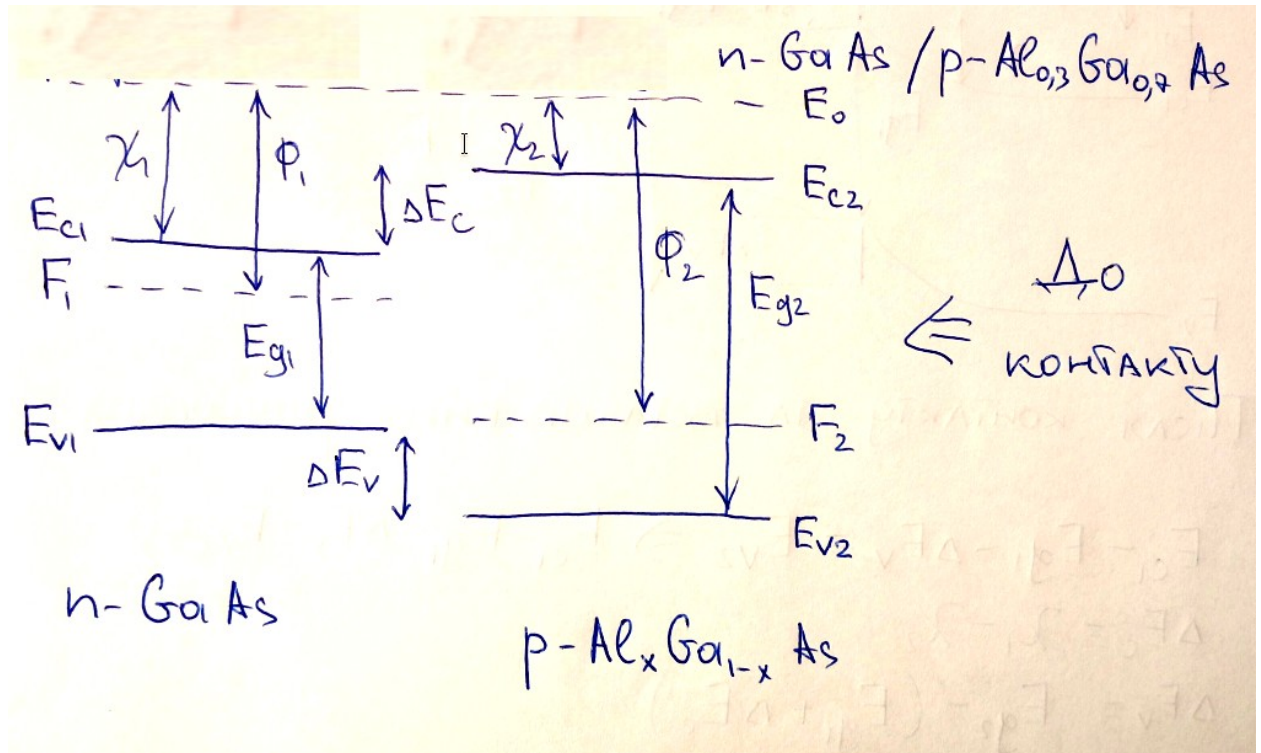 n-GaAs/p-Al₀,₃Ga₀,₇As
E₀
χ₁
φ₁
χ₂
ΔEc
Ec₂
Ec₁
F₁
φ₂
Eg₂
До
контакту
Eg₁
Ev₁
F₂
ΔEv
Ev₂
n-GaAs
p-AlₓGa₁₋ₓAs